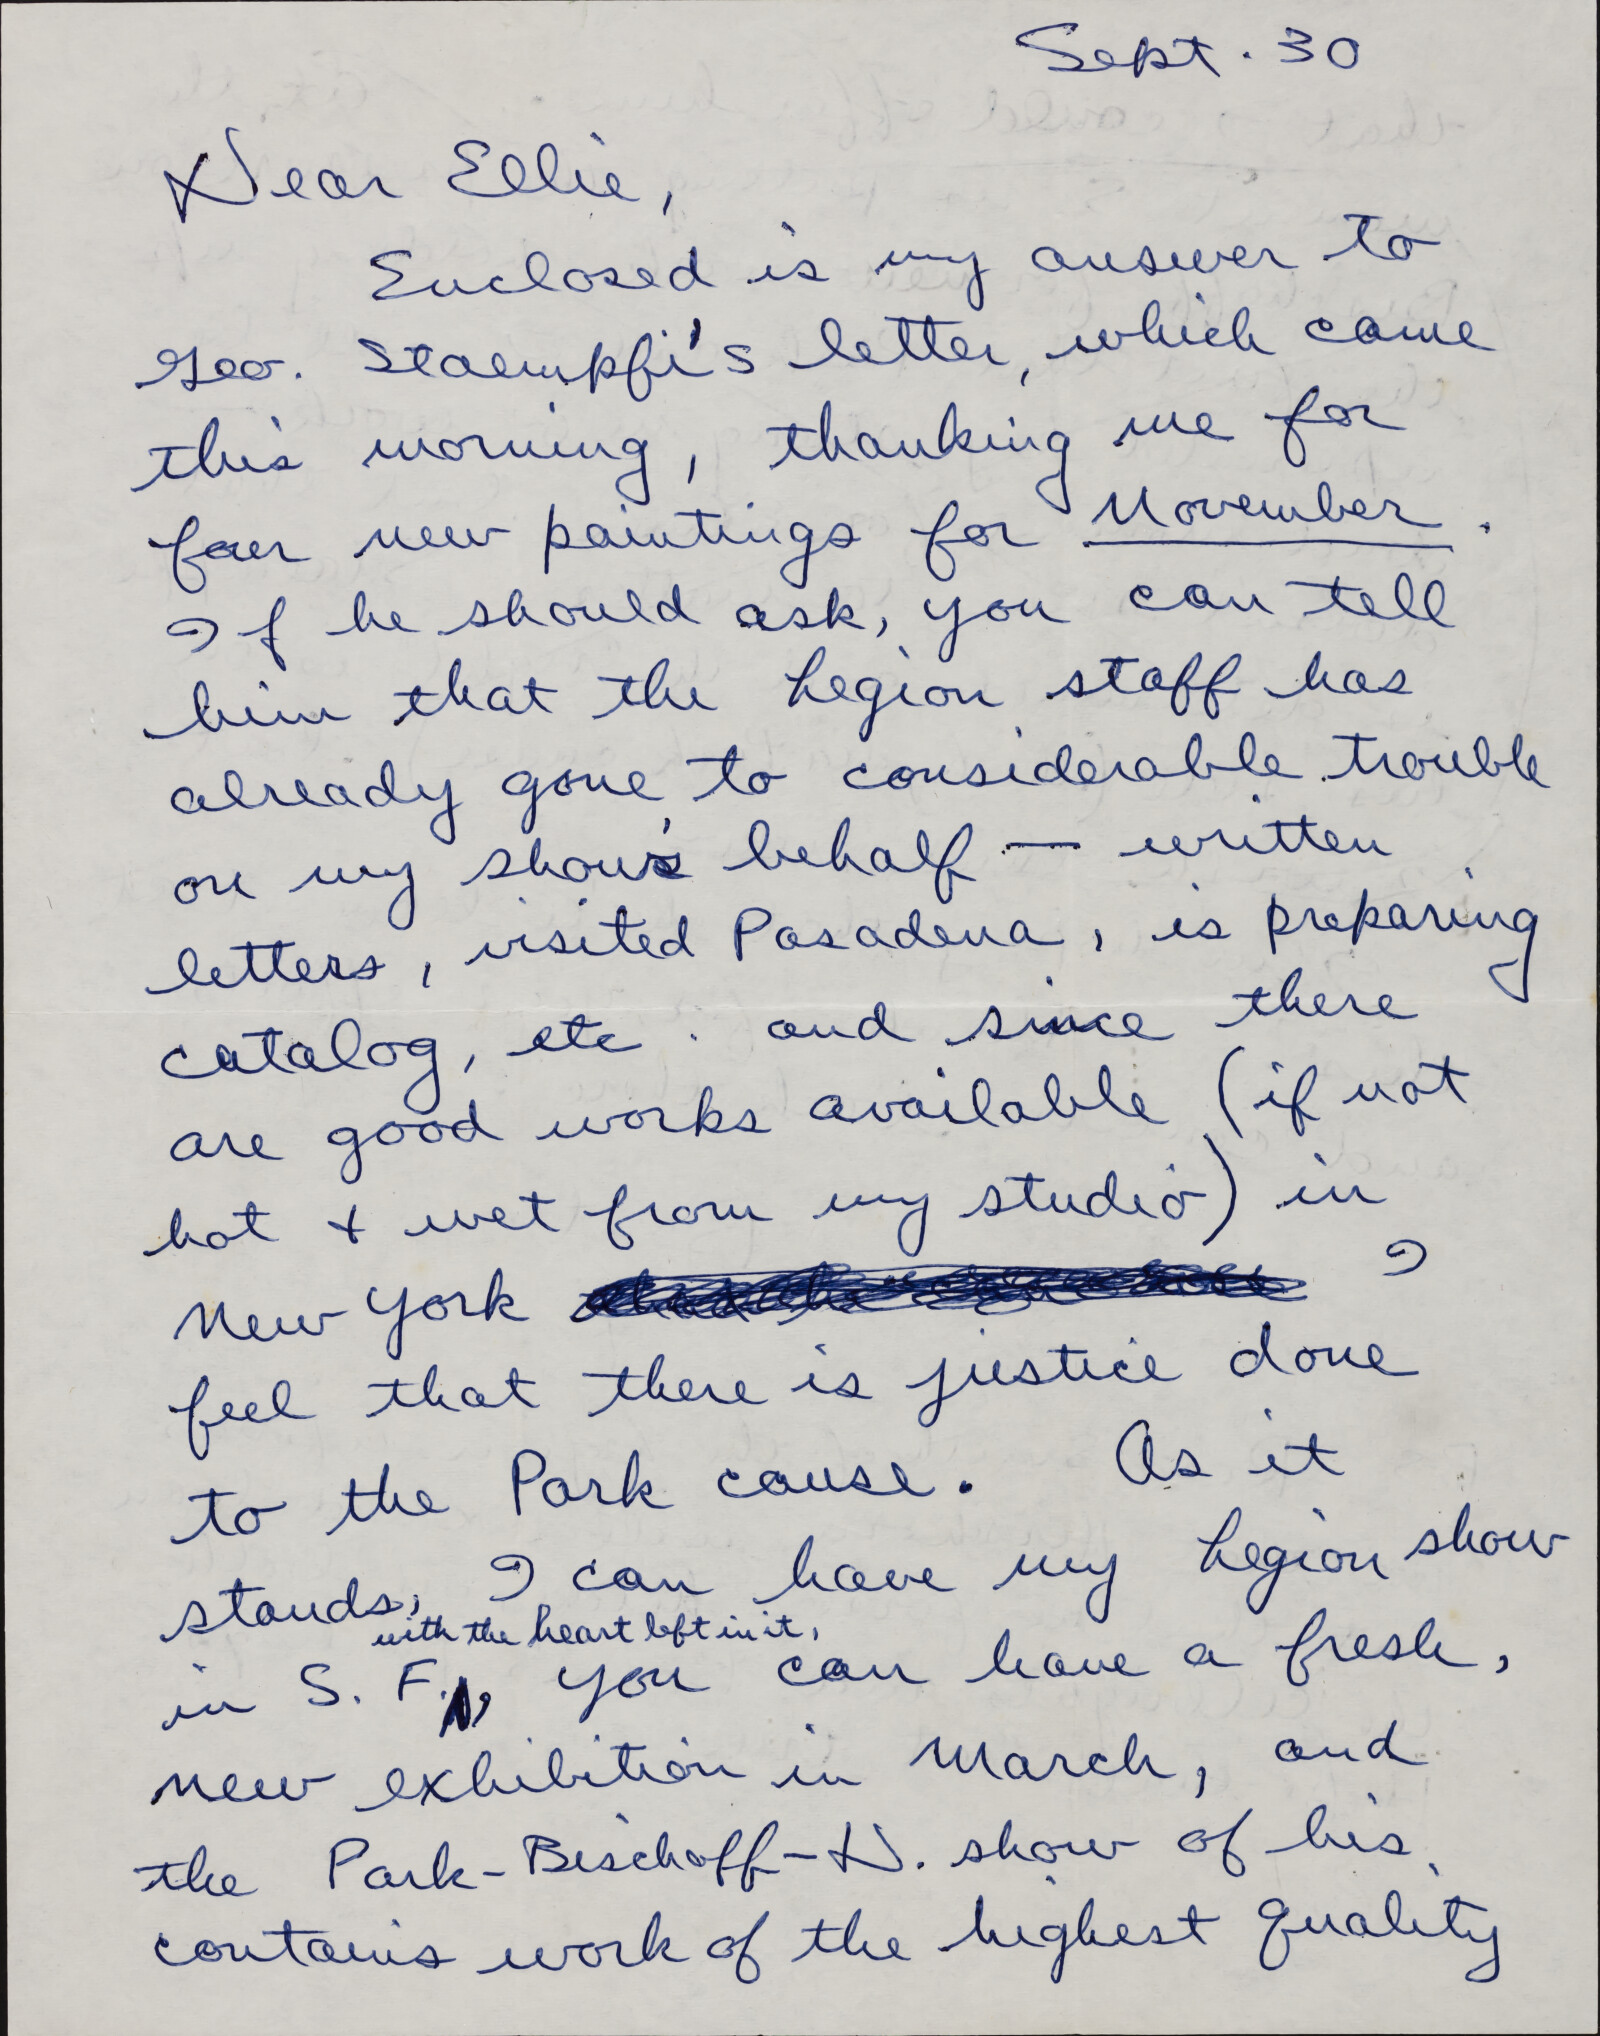 Sept. 30
Dear Ellie,
Enclosed is my answer to
Geo. Staempfli's letter, which came
this morning, thanking me for
four new paintings for November.
If he should ask, you can tell
him that the Legion staff has
already gone to considerable trouble
on my show's behalf — written
letters, visited Pasadena, is preparing
catalog, etc. and since there
are good works available (if not
hot & wet from my studio) in
New York I
feel that there is justice done
to the Park cause. As it
stands, I can have my Legion show
with the heart left in it,
in S. F., you can have a fresh,
new exhibition in March, and
the Park-Bischoff-D. show of his
contains work of the highest quality